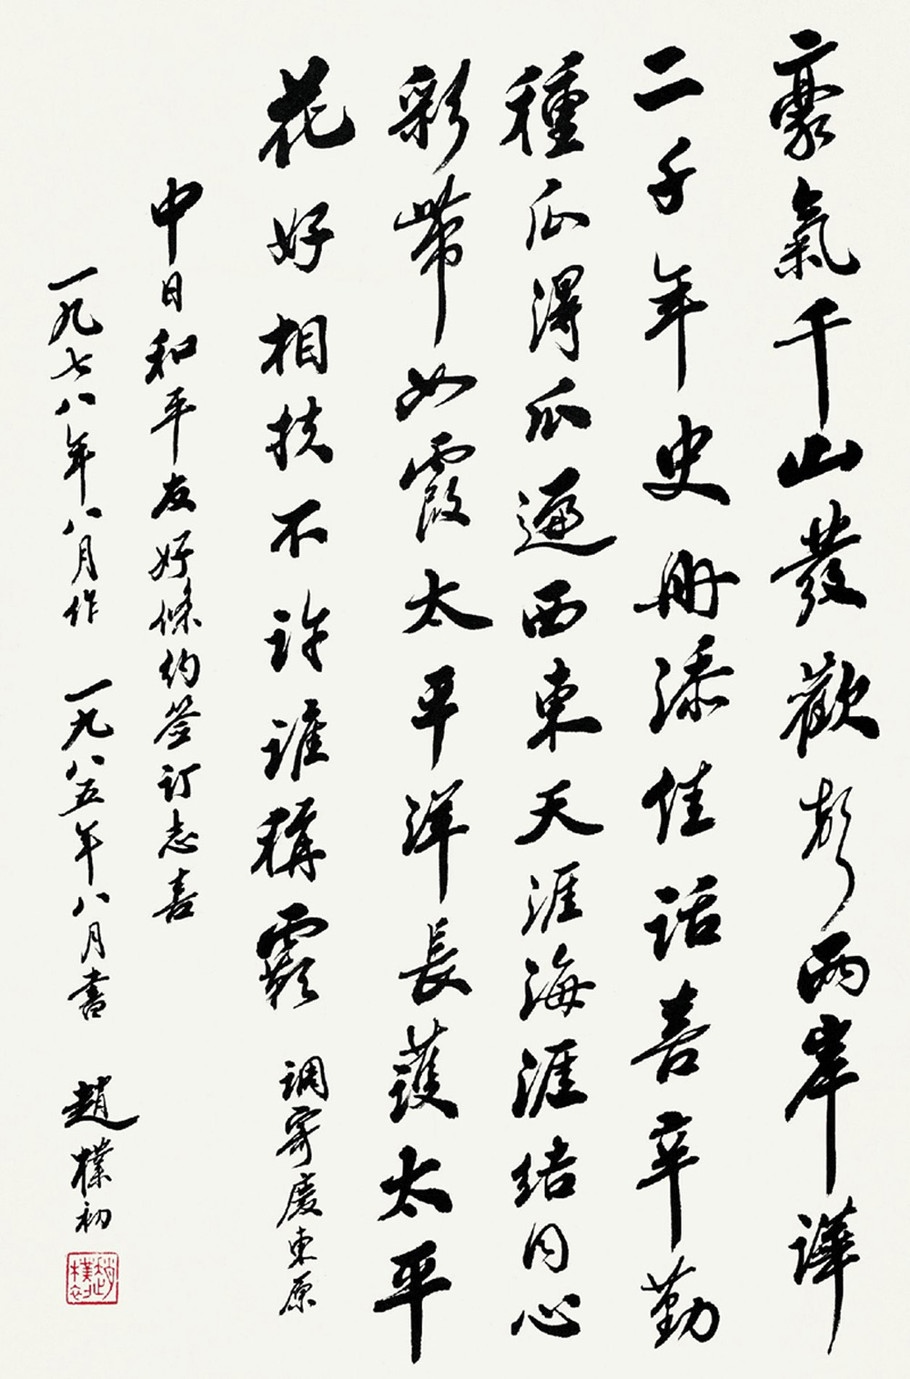 豪氣千山發歡聲兩岸譁
二千年史册添佳話喜辛勤
種瓜得瓜遍西東天涯海涯結同心
彩帶如霞太平洋長護太平
花好相扶不許誰稱霸 调寄慶東原
中日和平友好條约签订志喜
一九七八年八月作 一九八五年八月書 趙樸初
趙樸初